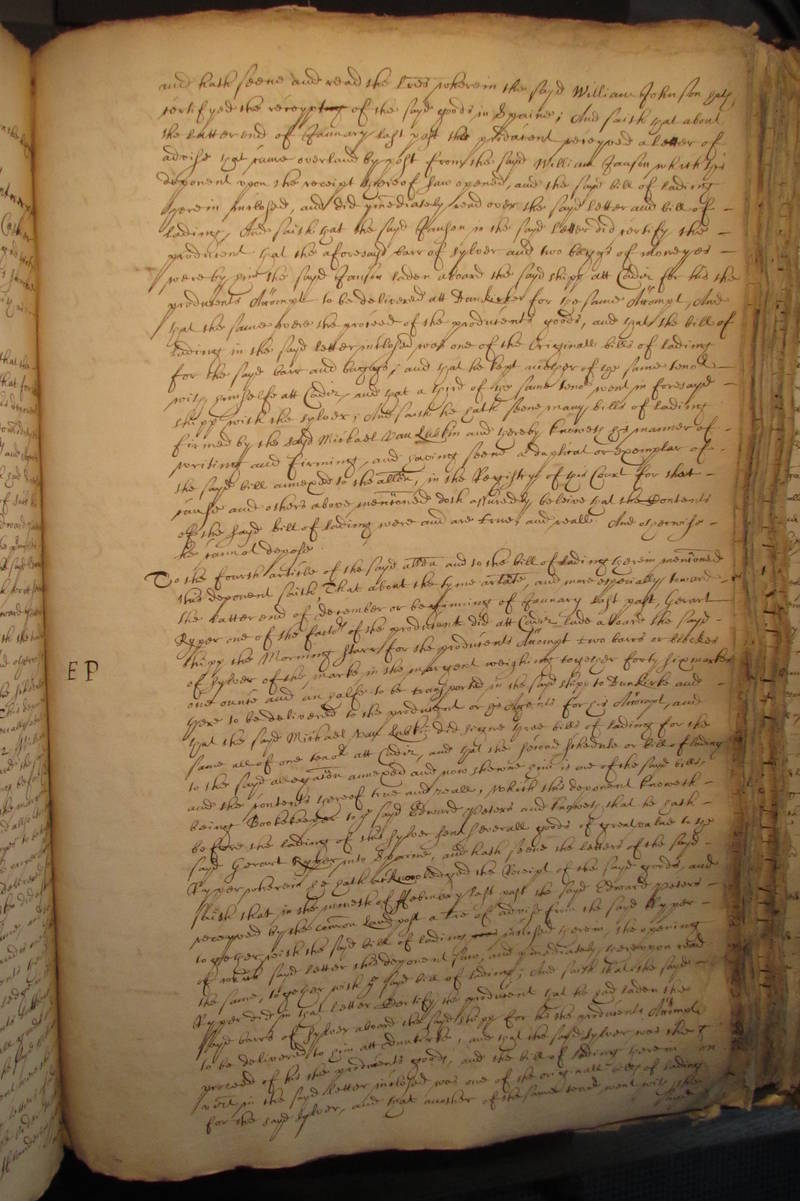 and hath seene and read the l̃res wherein the sayd William Johnson hath
certifyed the receipt of the sayd goods in Spaine; And saith that about
the latter end of January last past the producent received a letter of
advise that came overland by post from the sayd William Janson which this
deponent upon the receipt thereof saw opened, and the sayd bill of lading
therein inclosed, and did ymediately read over the sayd letter and bill of
lading, And saith that the sayd Janson in the sayd letter did certify the
producent that the aforesayd barr of sylver and two baggs of moneyes
were by him the sayd Janson laden aboard the sayd shipp att Cadiz for his the
producents Accompt to be delivered att Dunkerke for the same Accompt, And
that the same were the proceed of the producents goods, and that the bill of
lading in the sayd letter inclosed was one of the originall bills of lading
for the sayd barr and baggs, and that he kept another of the same tenor
with himselfe att Cadiz, and that a third of the same tenor went in foresayd
shipp with the sylver; And saith he hath seene many bills of lading
firmed by the sayd Michael Van Lubkin and thereby knoweth his manner of
writing and firming, and having seene a duplicat or exemplar of
the sayd bill annexed to the allõn, in the Registry of this Court for that
cause and others above menc̃oned doth assuredly beleive that the Contents
of the sayd bill of lading were and are true and reall. And otherwise
he cannot depose
To the fourth article of the sayd allõn and to the bill of lading therein menc̃oned
this deponent saith, That about the tyme arl̃ate, and more especially toward
the latter end of december or beginning of January last past, Gerart
Ryper one of the factors of the producent did att Cadiz lade aboard the sayd
shipp the Morning Starr for the producents Accompt two barrs or
EP
of sylver of the marke in the margent weighing together forty six markes
one ounce and an halfe to be transported in the sayd shipp to Dunkerke and
there to be delivered to the producent or his Agents for his Accompt, and
that the sayd Michael Van Lubkin did signe three bills of lading for the
same all of one tenor att Cadiz, and that the second schedule or bill of lading
to the sayd allegac̃on annexed and now shewne him is one of the sayd bills,
and the contents thereof true and reall, which this deponent knoweth
being Bookekeeper to the sayd Edward Peters and knoweth that he hath
before the lading of this sylver sent severall goods of great value to the
sayd Gerart Ryper into Spaine, and hath seene the letters of the sayd
Ryper wherein he hath acknowledged the receipt of the sayd goods, and
saith that in the moneth of February last past the sayd Edward Peters
received by the com̃on Land post a l̃re of advise from the sayd Ryper
together with the sayd bill of lading inclosed therein, the opening
of which sayd letter this deponent saw, and ymediately thereupon read
the same, together with the sayd bill of lading; And saith that the sayd
Ryper did in that letter Certify the producent that he had laden the
sayd barrs of Sylver aboard the sayd shipp for his the producents Accompt
to be delivered to him att Dunkirke, and that the sayd sylver was the
proceed of his the producents goods, and the bill of lading therein
in the sayd letter inclosed was one of the originall bills of lading
for the sayd sylver, and that another of the same tenor went with the
sayd